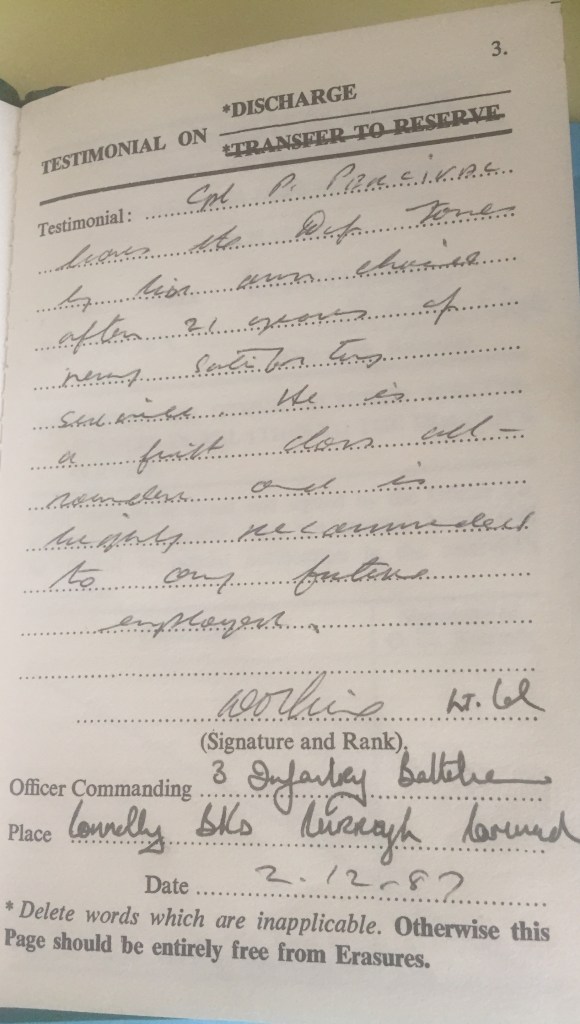 3.
TESTIMONIAL ON *DISCHARGE
*TRANSFER TO RESERVE
Testimonial: Cpl P. PERCIVAL
leaves the Def Forces
by his own choice
after 21 years of
very satisfactory
service. He is
a first class all-
rounder and is
highly recommended
to any future
employer.
Lt. Col
(Signature and Rank).
Officer Commanding 3 Infantry Battalion
Place Connolly Bks Curragh Command
Date 2.12.87
* Delete words which are inapplicable. Otherwise this
Page should be entirely free from Erasures.